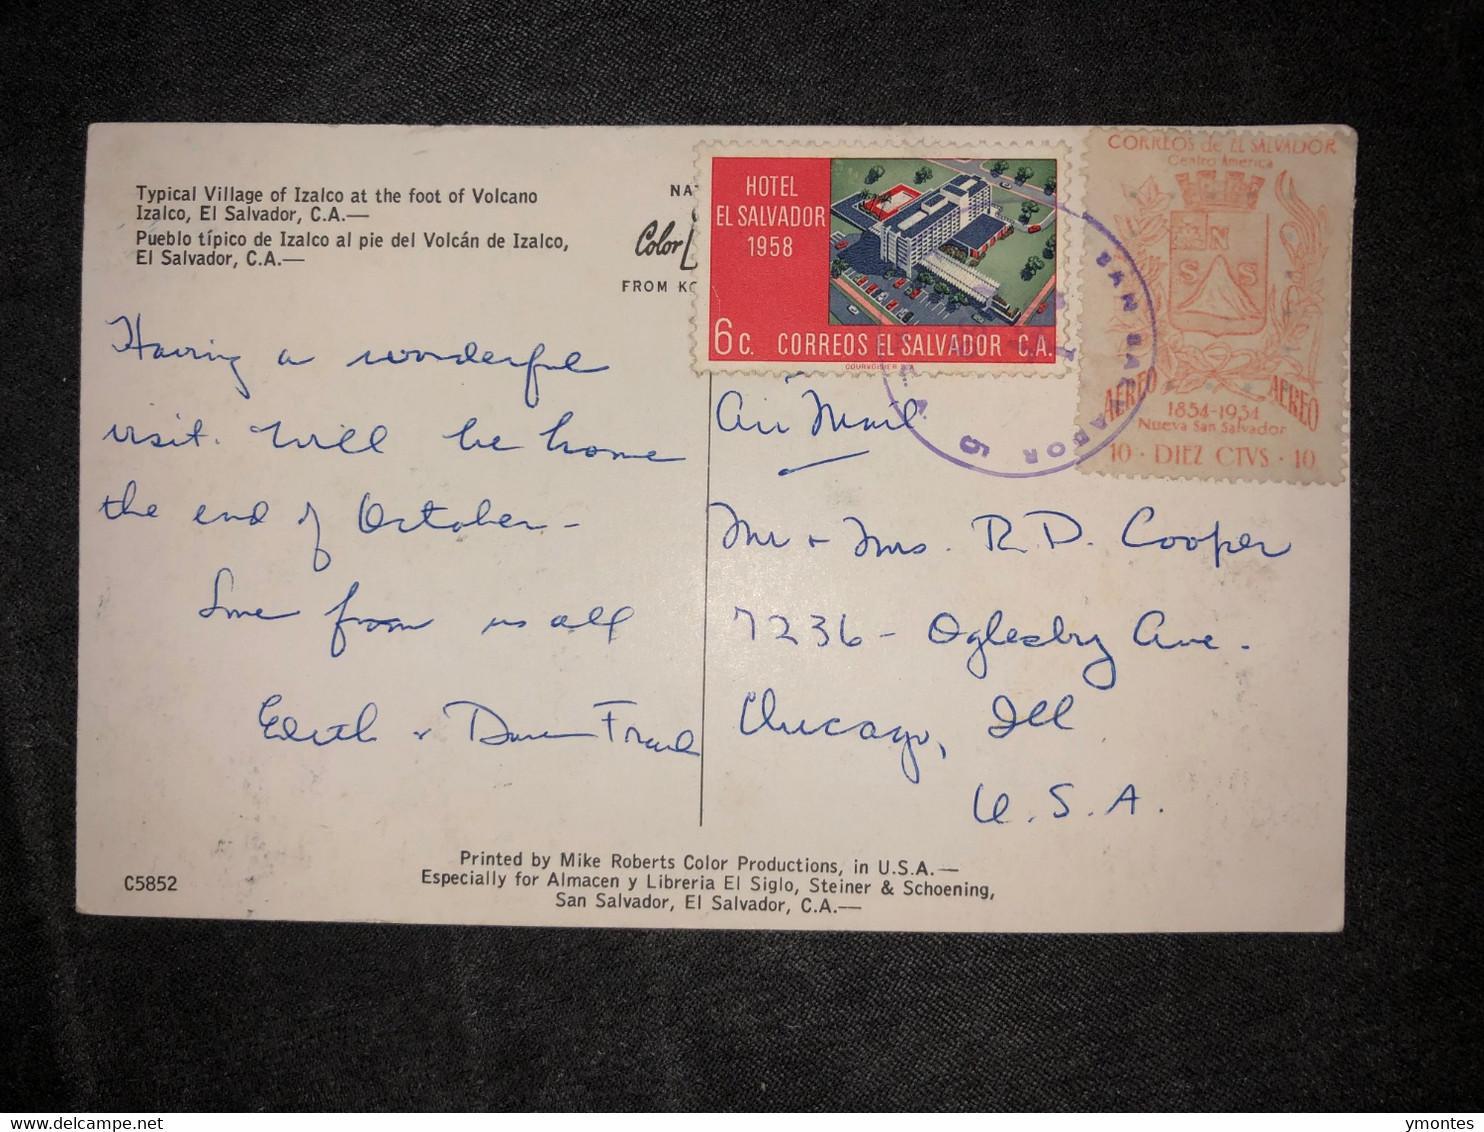 Typical Village of Izalco at the foot of Volcano
Izalco, El Salvador, C.A.—
Pueblo típico de Izalco al pie del Volcán de Izalco,
El Salvador, C.A.—
NAT
Color
FROM KO
HOTEL
EL SALVADOR
1958
6 C. CORREOS EL SALVADOR C.A.
COURVOISIER S.A.
CORREOS de EL SALVADOR
Centro America
N
S S
AEREO AEREO
1854-1954
Nueva San Salvador
10 · DIEZ CTVS · 10
SAN SALVADOR
5
Having a wonderful
visit. Will be home
the end of October—
Love from us all
Edith +
Air Mail
Mr + Mrs. R. D. Cooper
7236 - Oglesby Ave.
Chicago, Ill
U.S.A.
Printed by Mike Roberts Color Productions, in U.S.A.—
Especially for Almacen y Libreria El Siglo, Steiner & Schoening,
San Salvador, El Salvador, C.A.—
C5852
delcampe.net
ymontes